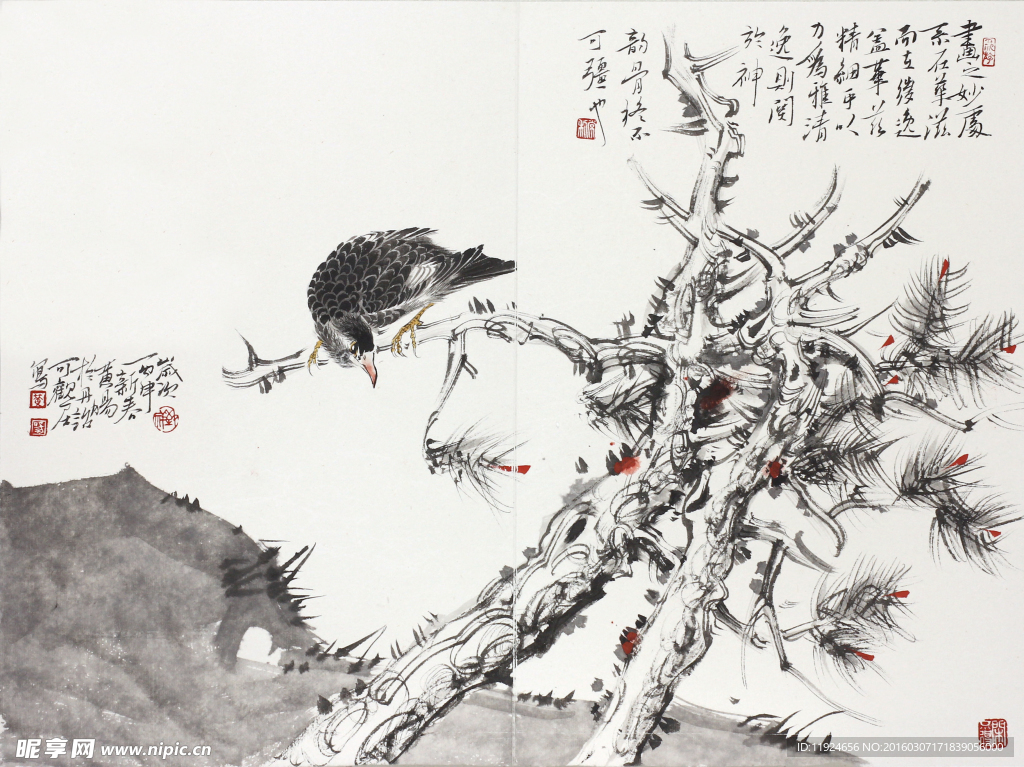 畫之妙處
不在華滋
而在
盖華滋
精細可以
力為雅清
逸則関
於神
韵骨格不
可彊也
歲次
丙申
新春
於丹詔
可觀居
寫
昵享网 www.nipic.cn
ID:11924656 NO:20160307171839056000